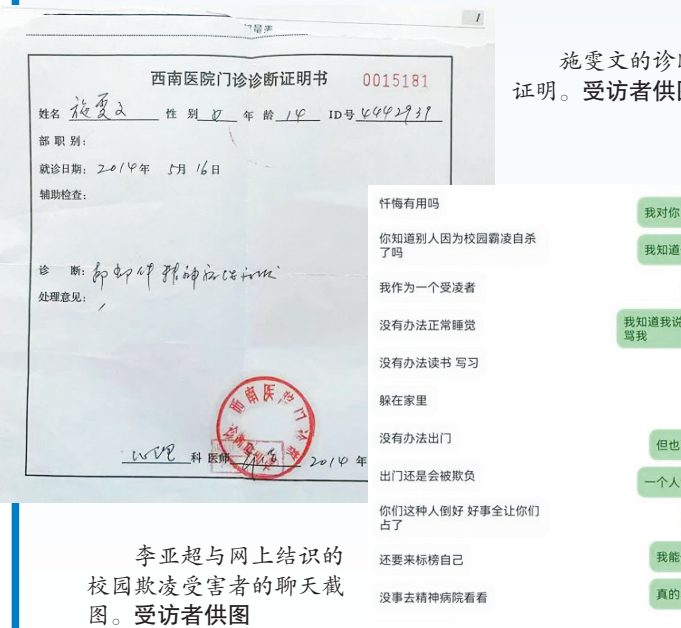 1
西南医院门诊诊断证明书 0015181
姓名 施雯文 性 别 女 年 龄 14 ID号 4442939
部 职 别:
就诊日期: 2014年 5月 16日
辅助检查:
诊 断:
处理意见:
心理 科 医师 2014 年
施雯文的诊
证明。受访者供图
忏悔有用吗
你知道别人因为校园霸凌自杀
了吗
我作为一个受凌者
没有办法正常睡觉
没有办法读书 写习
躲在家里
没有办法出门
出门还是会被欺负
你们这种人倒好 好事全让你们
占了
还要来标榜自己
没事去精神病院看看
我对你
我知道
我知道我说
骂我
但也
一个人
我能
真的
李亚超与网上结识的
校园欺凌受害者的聊天截
图。受访者供图